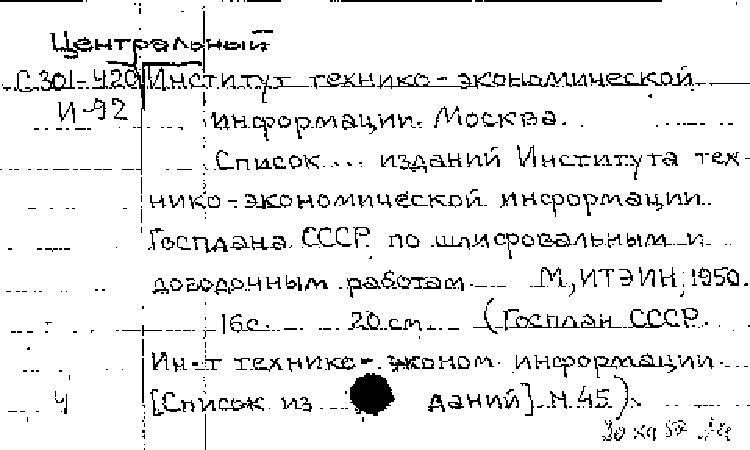 Центральный
С301-420 Институт технико-экономической
И-92 информации. Москва.
Список ... изданий Института тех-
нико-экономической информации
Госплана СССР по шлифовальным и
доводочным работам М., ИТЭИН, 1950.
16 с. 20 см (Госплан СССР.
Ин-т технико-эконом. информации
4 [Список из даний] N 45).